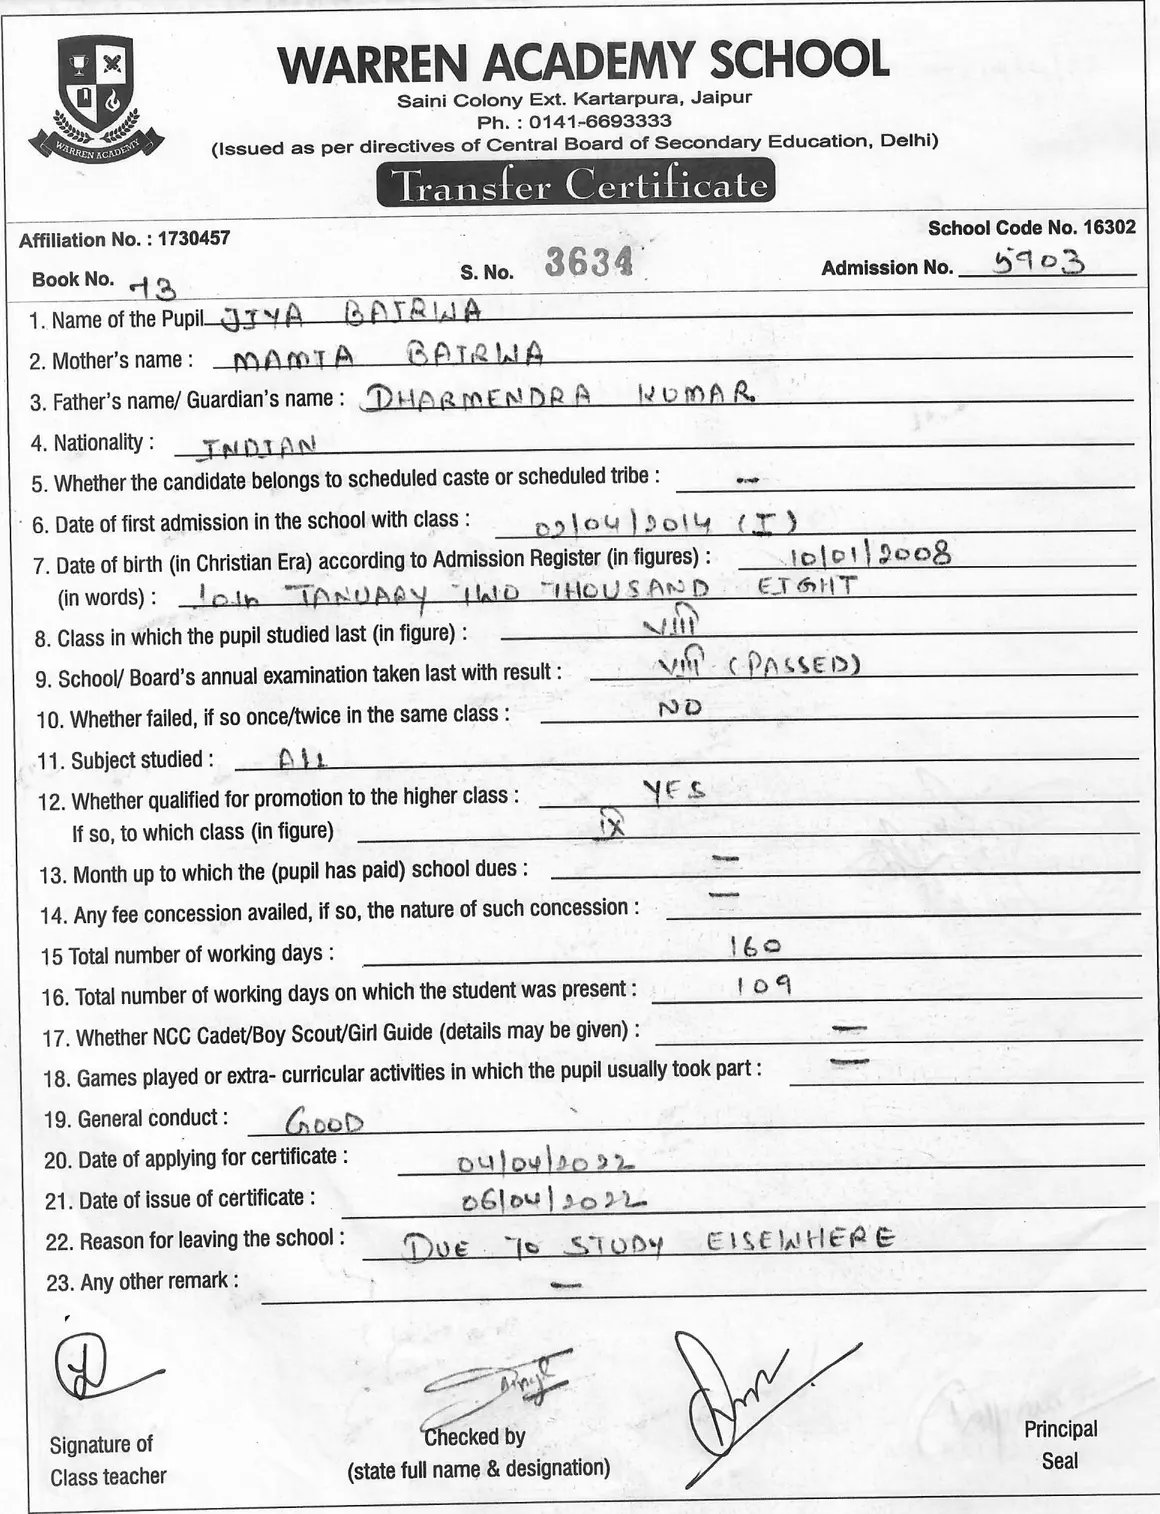 WARREN ACADEMY SCHOOL
Saini Colony Ext. Kartarpura, Jaipur
Ph. : 0141-6693333
(Issued as per directives of Central Board of Secondary Education, Delhi)
WARREN ACADEMY
Transfer Certificate
Affiliation No. : 1730457 School Code No. 16302
Book No. 73 S. No. 3634 Admission No. 5903
1. Name of the Pupil JIYA BAIRWA
2. Mother's name : MAMTA BAIRWA
3. Father's name/ Guardian's name : DHARMENDRA KUMAR
4. Nationality : INDIAN
5. Whether the candidate belongs to scheduled caste or scheduled tribe : -
6. Date of first admission in the school with class : 02/04/2014 (I)
7. Date of birth (in Christian Era) according to Admission Register (in figures) : 10/01/2008
(in words) : 10th JANUARY TWO THOUSAND EIGHT
8. Class in which the pupil studied last (in figure) : VIII
9. School/ Board's annual examination taken last with result : VIII (PASSED)
10. Whether failed, if so once/twice in the same class : NO
11. Subject studied : All
12. Whether qualified for promotion to the higher class : YES
If so, to which class (in figure) IX
13. Month up to which the (pupil has paid) school dues : -
14. Any fee concession availed, if so, the nature of such concession : -
15 Total number of working days : 160
16. Total number of working days on which the student was present : 109
17. Whether NCC Cadet/Boy Scout/Girl Guide (details may be given) : -
18. Games played or extra- curricular activities in which the pupil usually took part : -
19. General conduct : GOOD
20. Date of applying for certificate : 04/04/2022
21. Date of issue of certificate : 06/04/2022
22. Reason for leaving the school : DUE TO STUDY ElSEWHERE
23. Any other remark : -
Signature of Class teacher
Checked by
(state full name & designation)
Principal
Seal